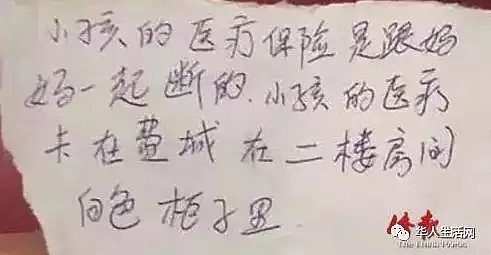 小孩的医疗保险是跟妈
妈一起断的.小孩的医疗
卡在费城在二楼房间
白色柜子里
侨报
The China Press
华人生活网